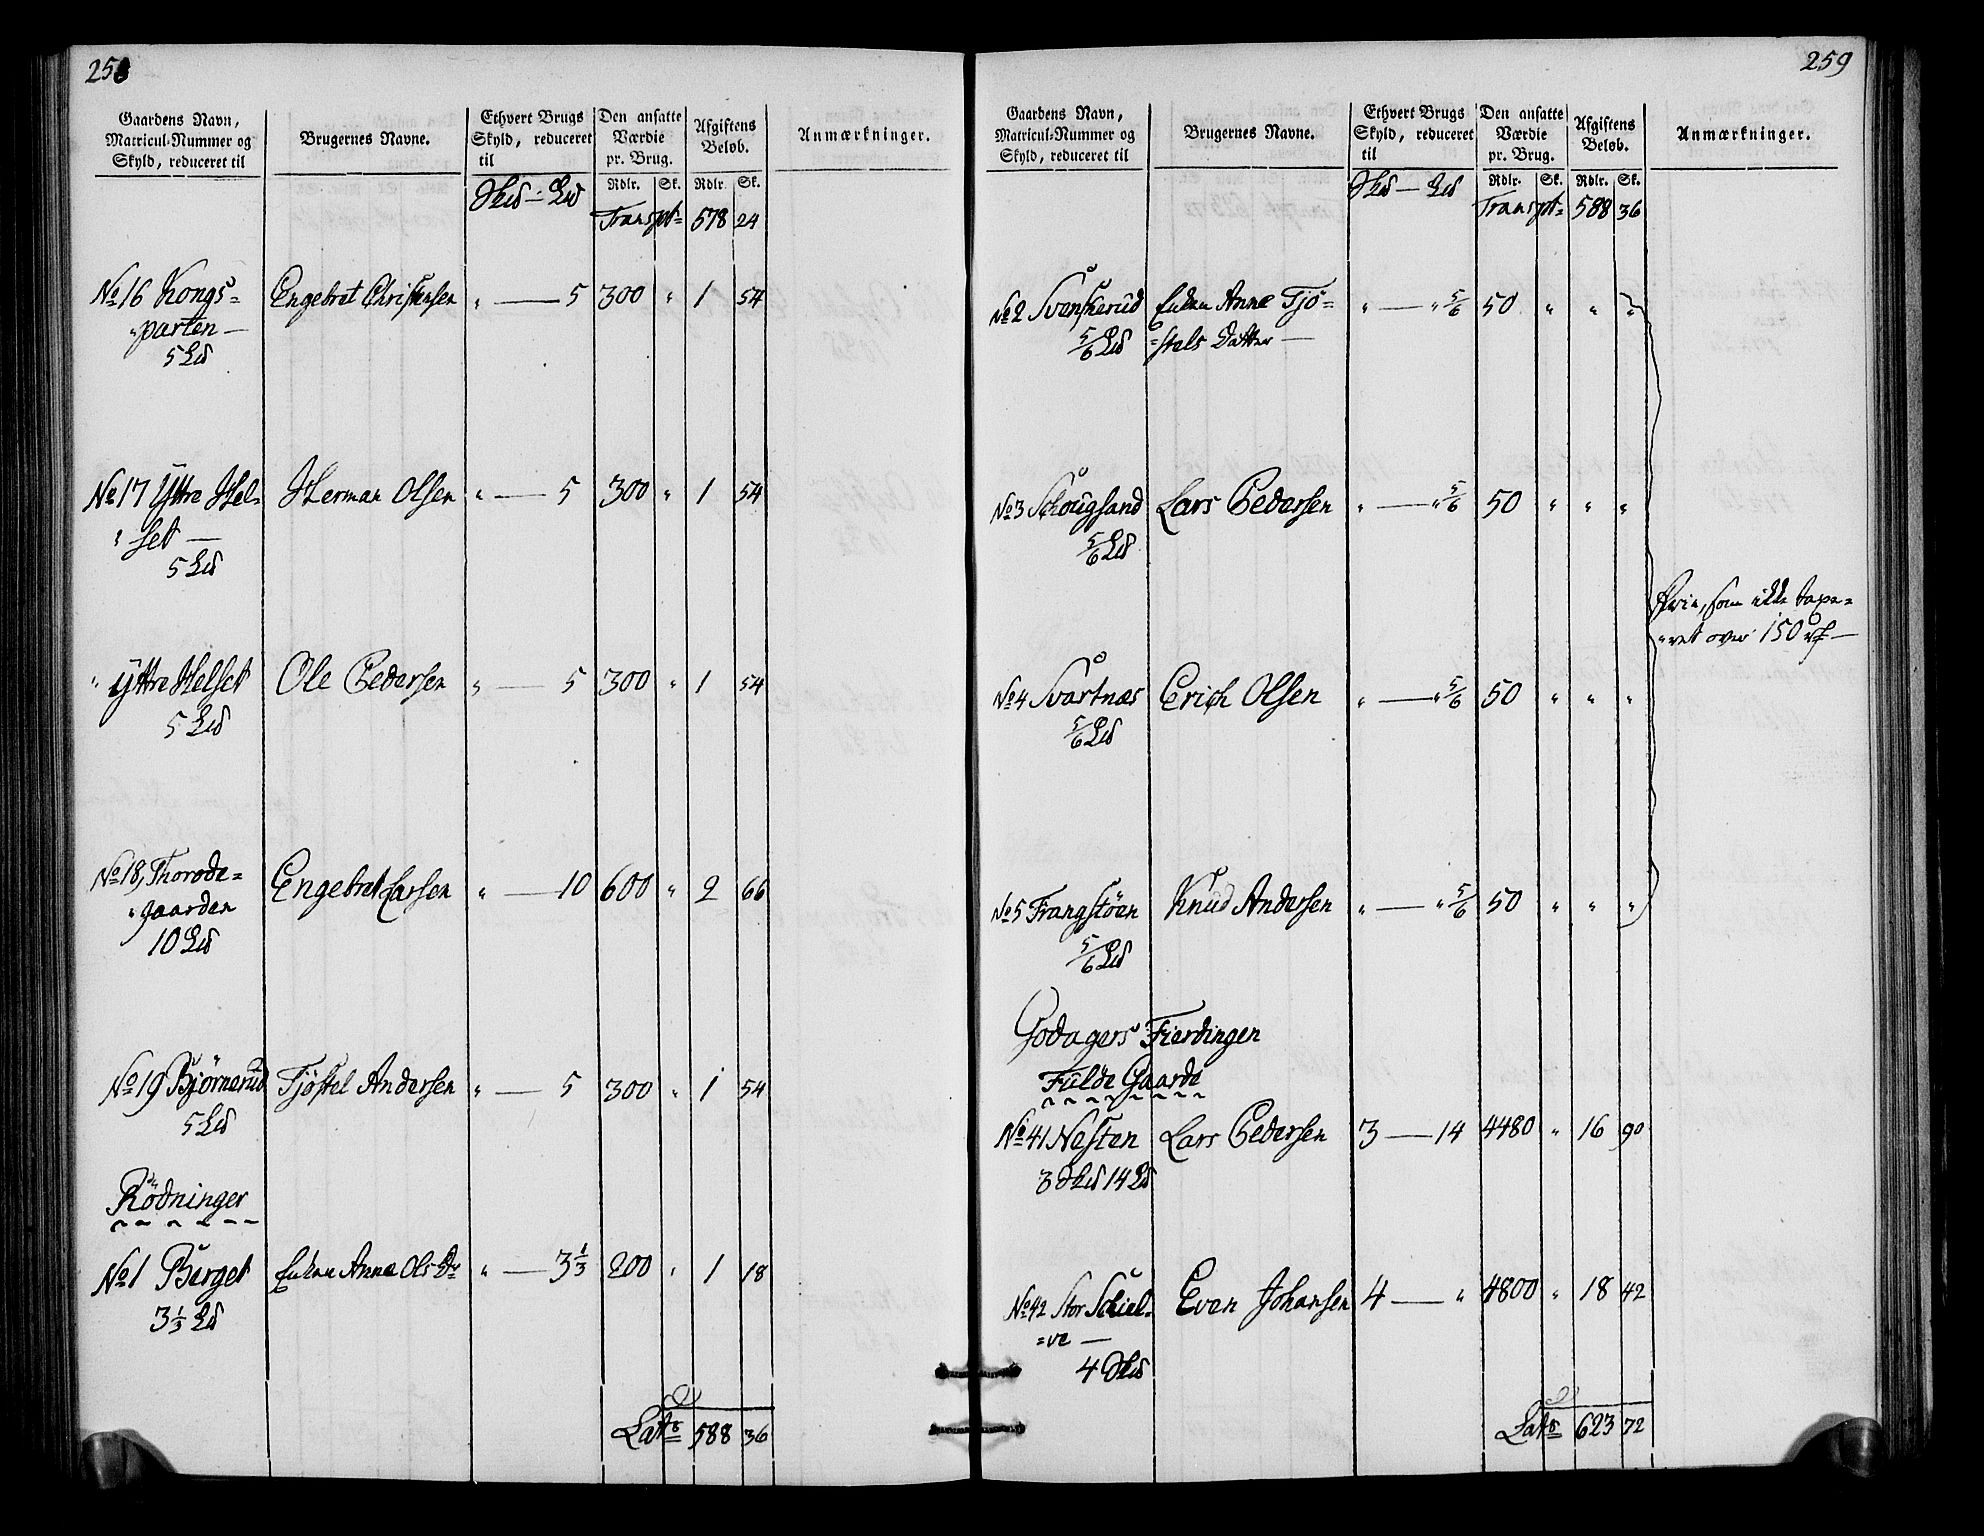 258
Gaardens Navn,
Matricul-Nummer og
Skyld, reduceret til
Brugernes Navne.
Ethvert Brugs
Skyld, reduceret
til
Den ansatte
Værdie
pr. Brug.
Afgiftens
Beløb.
Anmærkninger.
Rdlr. Sk. Rdlr. Sk.
Hud — Ld
Transpt= 578 24
No 16 Kongs= Engebret Christensen „ — 5 300 „ 1 54
„parten —
5 Ld
No 17 Yttre Hel= Herman Olsen „ — 5 300 „ 1 54
„ set —
5 Ld
„ Yttre Helset Ole Pedersen „ — 5 300 „ 1 54
5 Ld
No 18, Thorode= Engebret Larsen „ — 10 600 „ 2 66
„gaarden
10 Ld
No 19 Bjørnerud Tjøstel Andersen „ — 5 300 „ 1 54
5 Ld
Rödninger
No 1 Berget Enken Anne Ols Dr „ — 3 1/3 200 „ 1 18
3 1/3 Ld
Lats 588 36
259
Gaardens Navn,
Matricul-Nummer og
Skyld, reduceret til
Brugernes Navne.
Ethvert Brugs
Skyld, reduceret
til
Den ansatte
Værdie
pr. Brug.
Afgiftens
Beløb.
Anmærkninger.
Rdlr. Sk. Rdlr. Sk.
Hud — Ld
Transpt= 588 36
No 2 Svenskerud Enken Anne Tjø= „ — „ 5/6 50 „ „ „
5/6 Ld =stels Datter —
No 3 Schougsand Lars Pedersen „ — „ 5/6 50 „ „ „
5/6 Ld
frie, som ikke taxe=
„ret over 150 rd —
No 4 Svartnæs Erich Olsen „ — „ 5/6 50 „ „ „
5/6 Ld
No 5 Frangstöen Knud Andersen „ — „ 5/6 50 „ „ „
5/6 Ld
Godagers Fierdingen
Fulde Gaarde
No 41 Nesten Lars Pedersen 3 — 14 4480 „ 16 90
3 Hud 14 Ld
No 42 Stor Schiel= Even Johansen 4 — „ 4800 „ 18 42
=ve —
4 Hud
Lats 623 72